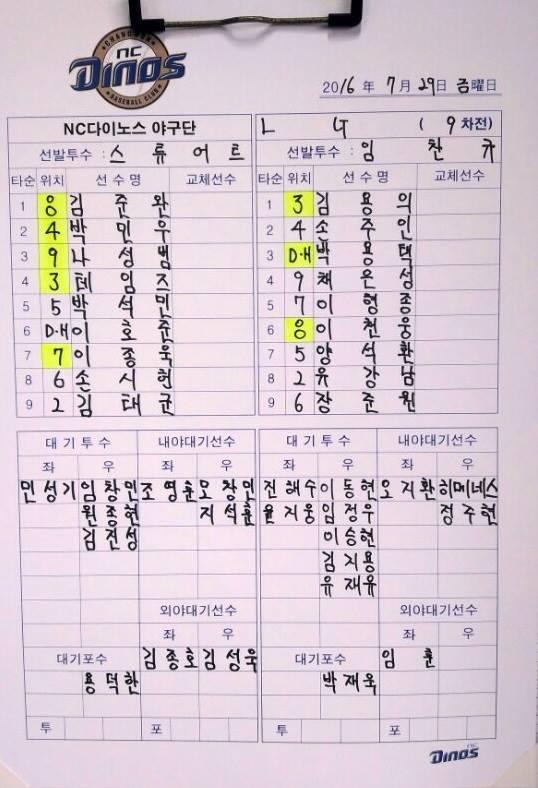 CHANGWON
NC
Dinos
BASEBALL CLUB
2016 年 7 月 29 日 금 曜日
NC다이노스 야구단
선발투수 : 스 류 어 트
타순 위치 선 수 명 교체선수
1 8 김 준 완
2 4 박 민 우
3 9 나 성 범
4 3 테 임 즈
5 5 박 석 민
6 D·H 이 호 준
7 7 이 종 욱
8 6 손 시 헌
9 2 김 태 균
L G ( 9 차전)
선발투수 : 임 찬 규
타순 위치 선 수 명 교체선수
1 3 김 용 의
2 4 손 주 인
3 D·H 박 용 택
4 9 채 은 성
5 7 이 형 종
6 8 이 천 웅
7 5 양 석 환
8 2 유 강 남
9 6 장 준 원
대 기 투 수 내야대기선수
좌 우 좌 우
민 성 기 임 창 민 조 영 훈 모 창 민
원 종 현 지 석 훈
김 진 성
외야대기선수
좌 우
대기포수 김 종 호 김 성 욱
용 덕 한
투 포
대 기 투 수 내야대기선수
좌 우 좌 우
진 해 수 이 동 현 오 지 환 히메네스
윤 지 웅 임 정 우 정 주 현
이 승 현
김 지 용
유 재 유
외야대기선수
좌 우
대기포수 임 훈
박 재 욱
투 포
NC
Dinos